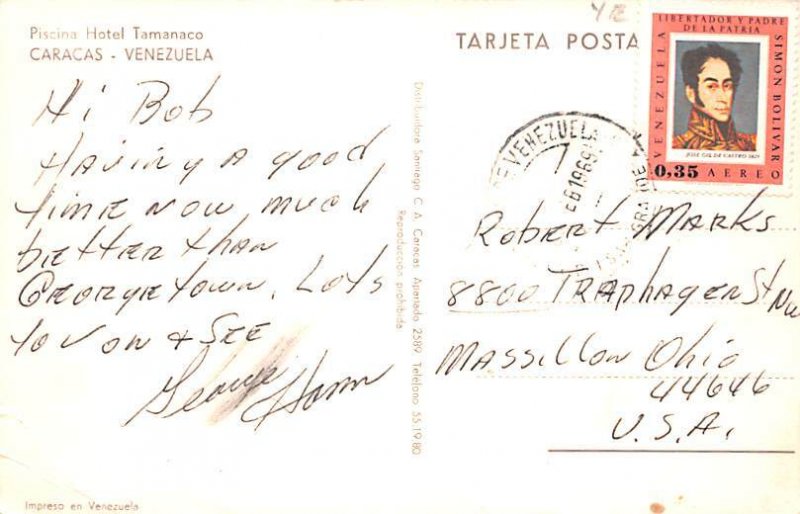 Piscina Hotel Tamanaco
CARACAS - VENEZUELA
Hi Bob
Having a good
time now much
better than
Georgetown. Lots
to do + see
George
Distribuidora Santiago C. A. Caracas Apartado 2589 Telefono 55.19.80
Reproduccion prohibida
Impreso en Venezuela
TARJETA POSTA
VENEZUELA
LIBERTADOR Y PADRE
DE LA PATRIA
SIMON BOLIVAR
JOSE GIL DE CASTRO 1825
0,35 AEREO
VENEZUELA
1969
Robert Marks
8800 Traphagen St NW
Massillon Ohio
44646
U.S.A.